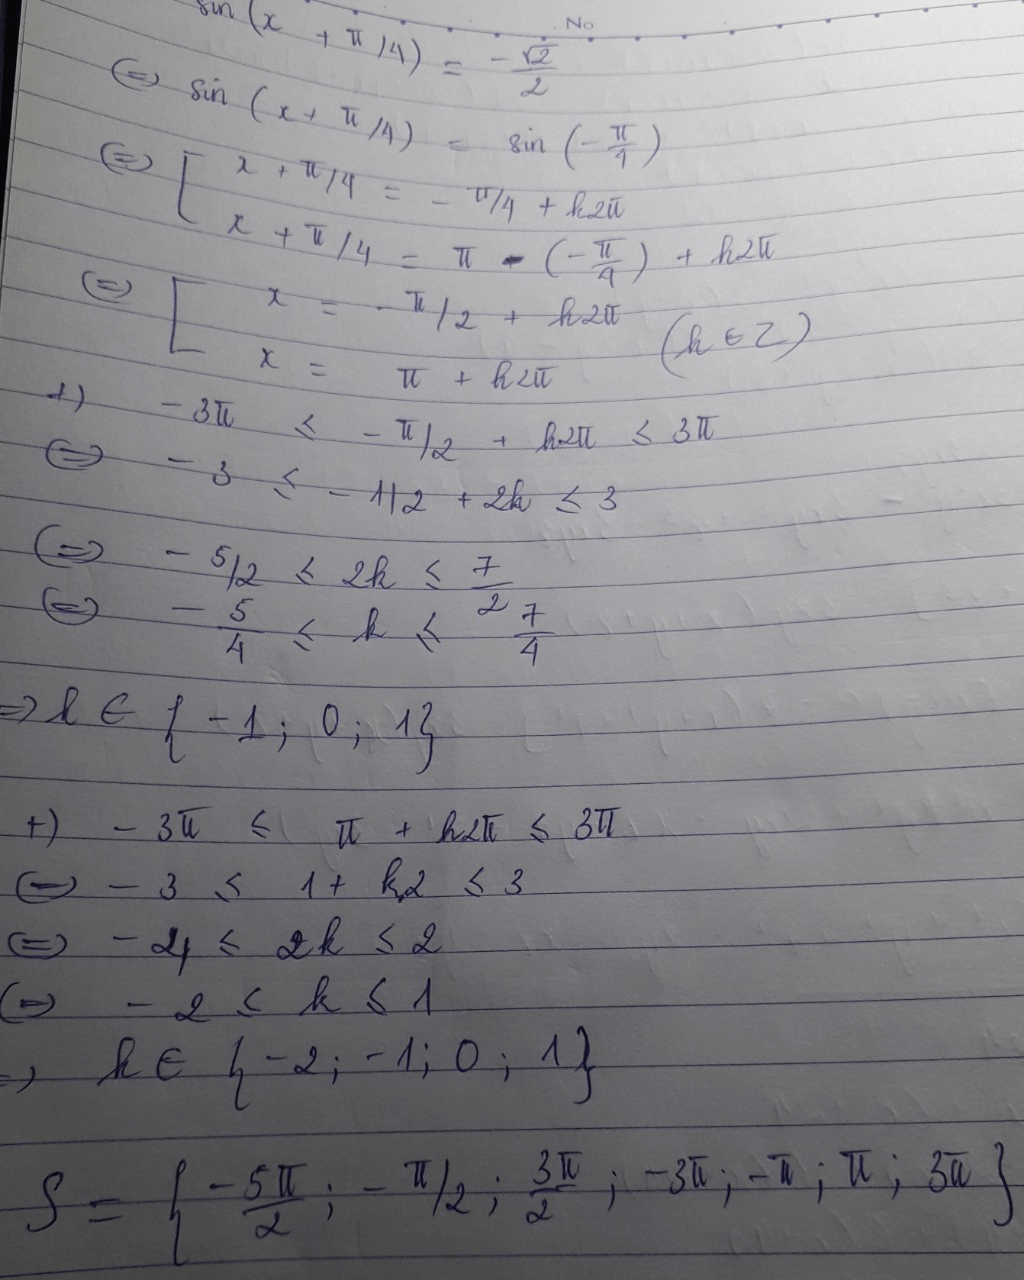 No
sin (x + π/4) = - √2/2
(=) sin (x + π/4) = sin (-π/4)
(=) [ x + π/4 = - π/4 + k2π
x + π/4 = π - (-π/4) + k2π
(=) [ x = - π/2 + k2π
x = π + k2π (k ∈ Z)
+) - 3π ≤ - π/2 + k2π ≤ 3π
(=) - 3 ≤ - 1/2 + 2k ≤ 3
(=) - 5/2 ≤ 2k ≤ 7/2
(=) - 5/4 ≤ k ≤ 7/4
=> k ∈ { -1; 0; 1}
+) - 3π ≤ π + k2π ≤ 3π
(=) - 3 ≤ 1 + k2 ≤ 3
(=) - 4 ≤ 2k ≤ 2
(=) - 2 ≤ k ≤ 1
=> k ∈ {-2; -1; 0; 1}
S = { -5π/2; - π/2; 3π/2; -3π; -π; π; 3π }